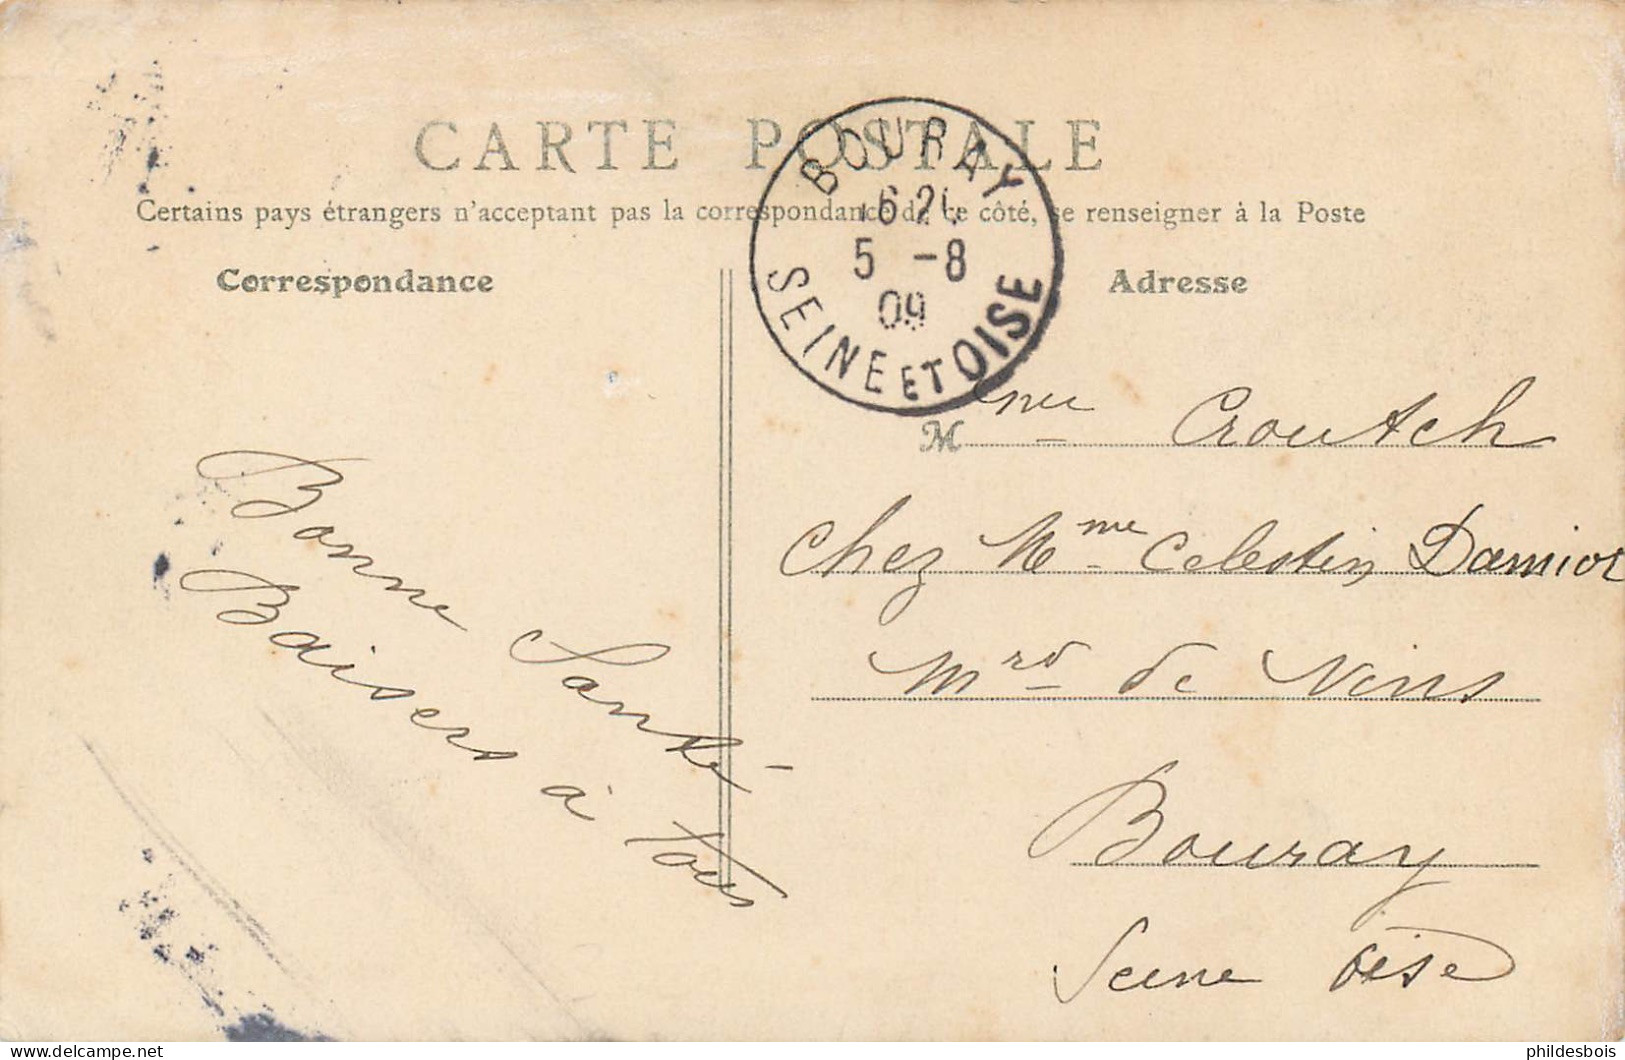 CARTE POSTALE
Certains pays étrangers n'acceptent pas la correspondance de ce côté, se renseigner à la Poste
Correspondance
Adresse
BOURAY
5 -8
09
SEINE ET OISE
Bonne Santé
Baisers à tous
M me Croutch
chez Mme Celestin Damiot
Mrd de Vins
Bouray
Seine Oise
phildesbois